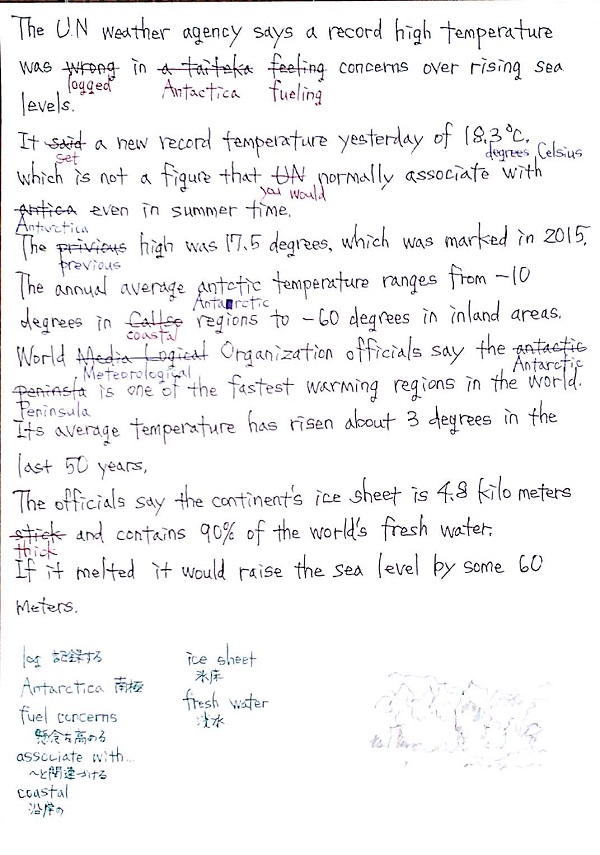 The U.N weather agency says a record high temperature
was wrong in a taiteka feeling concerns over rising sea
logged Antactica fueling
levels.
It said a new record temperature yesterday of 18.3℃.
set degrees Celsius
which is not a figure that UN normally associate with
you would
antica even in summer time.
Antarctica
The privious high was 17.5 degrees, which was marked in 2015.
previous
The annual average antctic temperature ranges from -10
Antarctic
degrees in Callse regions to -60 degrees in inland areas.
coastal
World Media Logical Organization officials say the antactic
Meteorological Antarctic
peninsta is one of the fastest warming regions in the world.
Peninsula
Its average temperature has risen about 3 degrees in the
last 50 years,
The officials say the continent's ice sheet is 4.8 kilo meters
stick and contains 90% of the world's fresh water.
thick
If it melted it would raise the sea level by some 60
meters.
log 記録する
Antarctica 南極
fuel concerns
懸念を高める
associate with...
〜と関連づける
coastal
沿岸の
ice sheet
氷床
fresh water
淡水